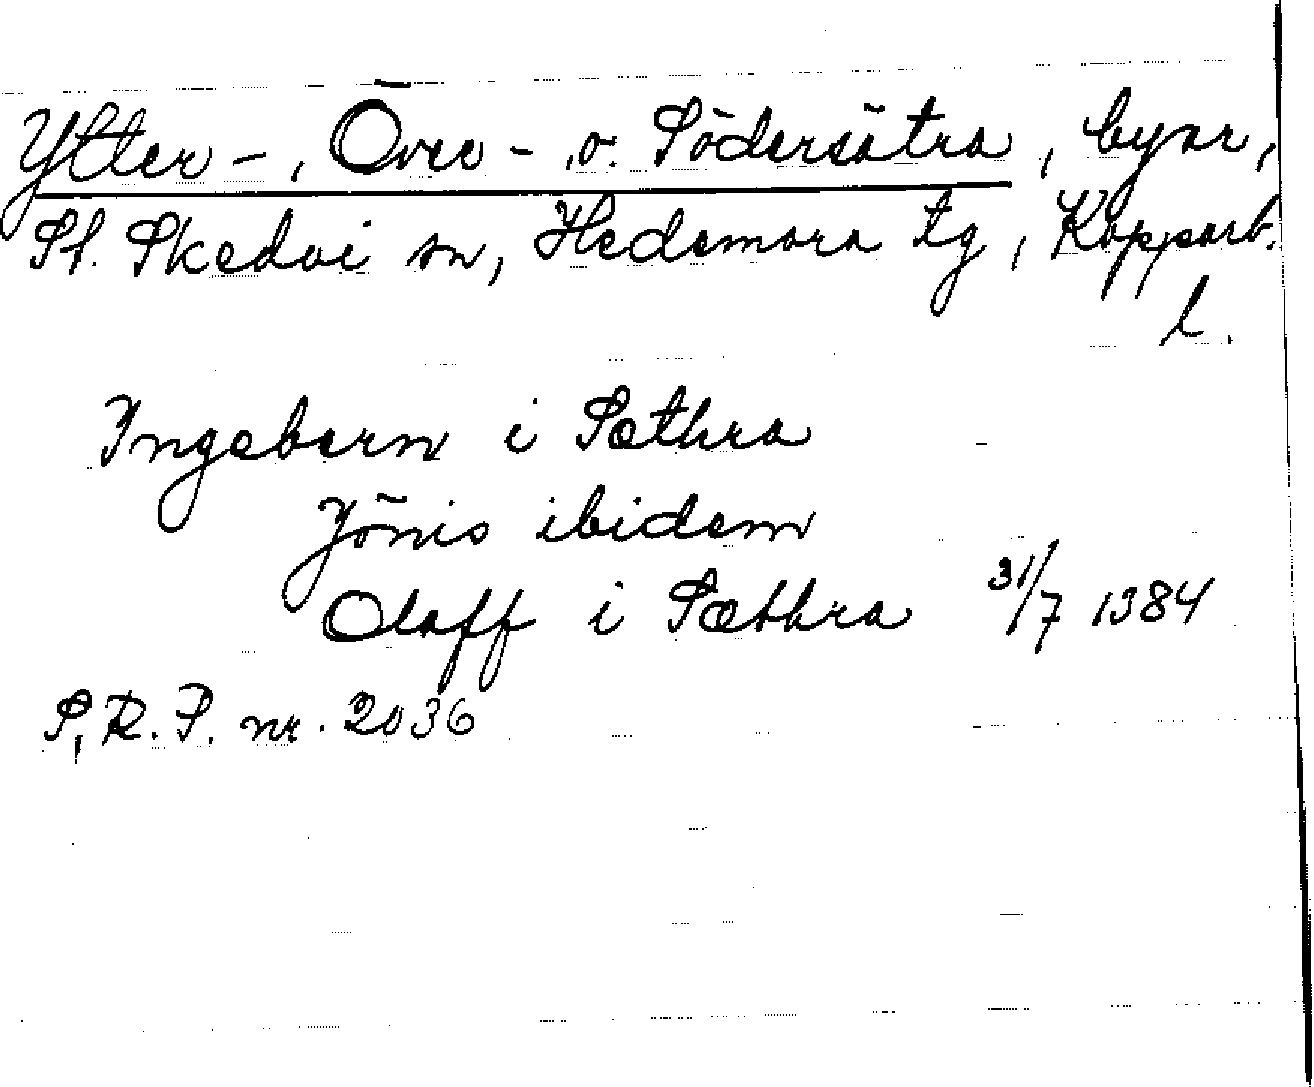 Ytter-, Över-, o. Södersätra, byar,
St. Skedvi sn, Hedemora tg, Kopparb.
l.
Ingeborn i Sæthra
Jönis ibidem
Olaff i Sæthra 31/7 1384
S.R.P. nr. 2036